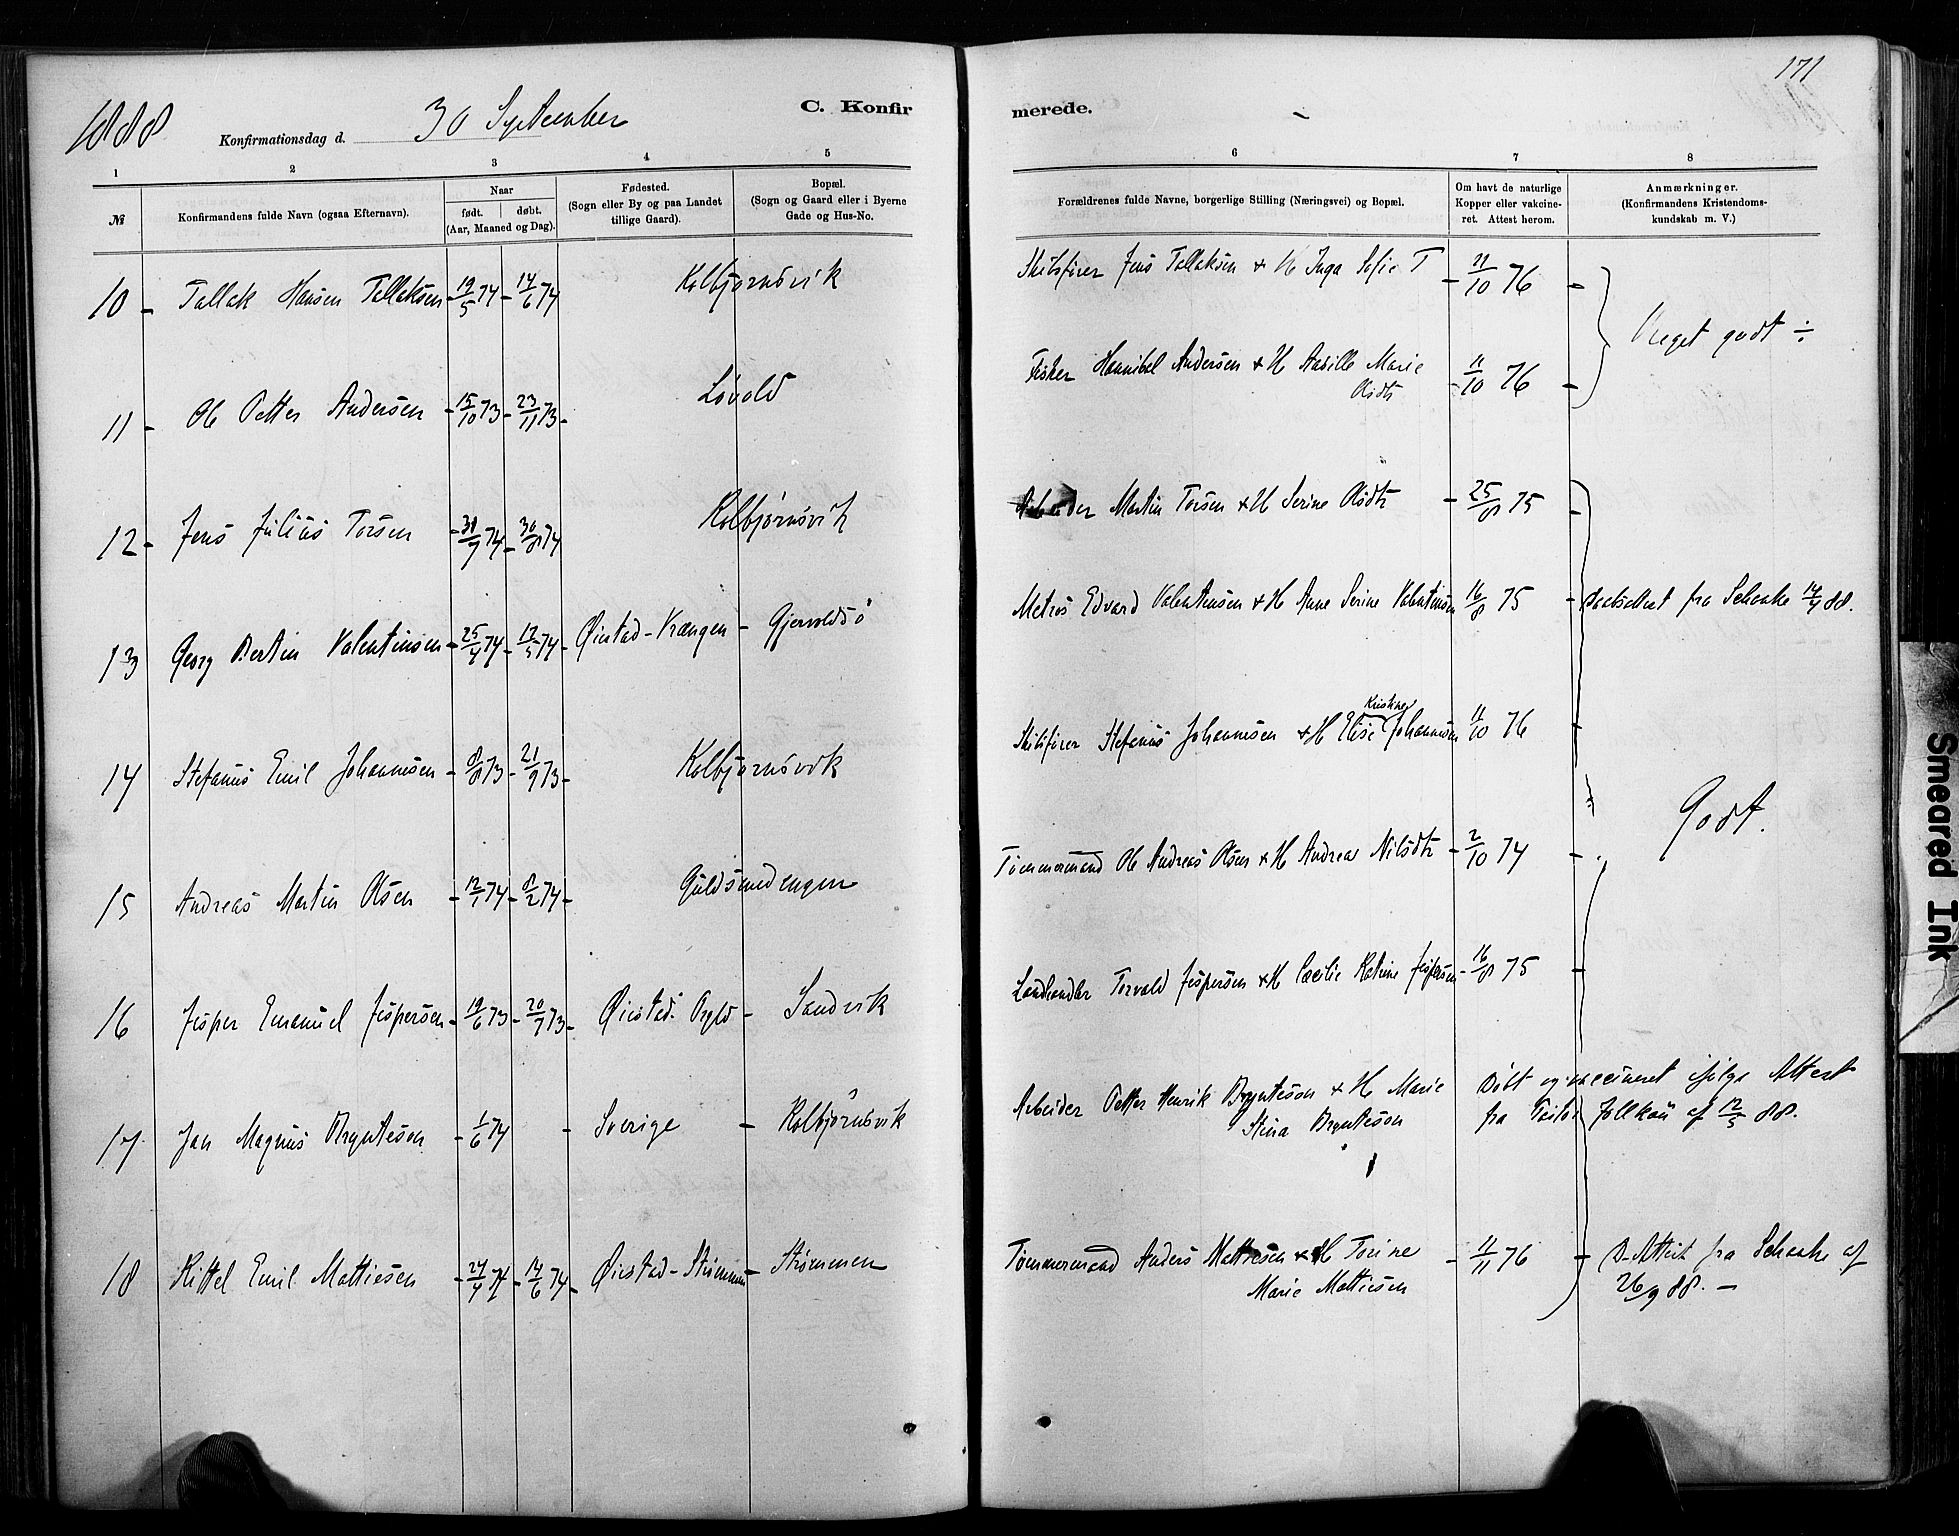 171
1888
Konfirmationsdag d. 30 September
C. Konfirmerede.
1 2 3 4 5 6 7 8
№ Konfirmandens fulde Navn (ogsaa Efternavn). Naar født. døbt. (Aar, Maaned og Dag). Fødested. (Sogn eller By og paa Landet tillige Gaard). Bopæl. (Sogn og Gaard eller i Byerne Gade og Hus-No. Forældrenes fulde Navne, borgerlige Stilling (Næringsvei) og Bopæl. Om havt de naturlige Kopper eller vakcineret. Attest herom. Anmærkninger. (Konfirmandens Kristendomskundskab m. V.)
10 - Tallak Hansen Tallaksen - 19/5 74 - 14/6 74 Kolbjørnsvik Skibsfører Jens Tallaksen + H Inga Sofie T - 11/10 76 -
Meget godt ÷
11 - Ole Petter Andersen - 15/10 73 - 23/11 73 - Løvold Fisker Hannibal Andersen + H Marie Olsdtr - 11/10 76 -
12 - Jens Julius Torsen - 30/8 74 Kolbjørnsvik Arbeider Martin Torsen + H Serine Olsdtr - 25/8 75 -
13 Georg Bertin Valentinsen - 25/4 74 - 17/5 74 - Øiestad - Vrængen - Gjervoldsø Matros Edvard Valentinsen + H Anne Serine Valentinsen 16/8 75 - fra Schanke 14/4 88.
14 Stefanus Emil Johannesen - 8/8 73 - 21/9 73 - Kolbjørnsvik Skibsfører Stefanus Johannesen + H Elise Kristine Johannesen 11/10 76 -
Godt.
15 Andreas Martin Olsen - 12/1 74 - 8/2 74 - Guldsmedengen Tømmermand Ole Andreas Olsen + H Andrea Nilsdtr - 2/10 74 -
16 Jesper Emanuel Jespersen - 19/6 73 - 20/7 73 - Øiestad - Sandvik Landhandler Torvald Jespersen + H Cæcilie Katrine Jespersen - 16/8 75 -
17. Jan Magnus Bryntesson - 1/6 74 - Sverige - Kolbjørnsvik Arbeider Petter Henrik Bryntesson + H Marie Stina Bryntesson Døbt og vaccineret ifølge Attest
fra Pastor af 12/5 88.
18 Kittel Emil Mattiesen - 24/4 74 - 14/6 74 - Øiestad - Strømmen - Strømmen Tømmermand Anders Mattiesen + H Torine Marie Mattiesen - 11/11 76 - D-Attest fra Schanke af
26/9 88. -
Smeared Ink